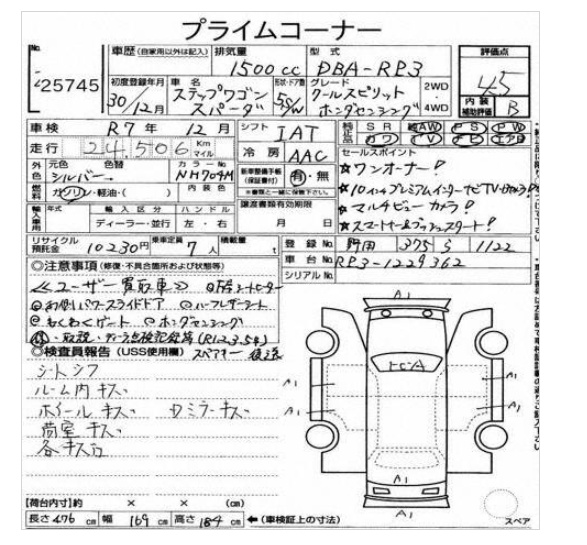 プライムコーナー
No. 25745
車歴（自家用以外は記入） 排気量 1500cc 型式 DBA-RP3
評価点 4.5
初度登録年月 30/12月 車名 ステップワゴン スパーダ 形状・ドア数 5S/W グレード クールスピリット ホンダセンシング 2WD・4WD
内装補助評価 B
車検 R7年 12月 シフト IAT
純正装備品 SR AW PS PW
カワ TV ナビ エアB
走行 24,506 Km マイル
冷房 AAC
セールスポイント
☆ワンオーナー!
外色 元色 シルバー 色替 カラーNo NH704M
新車整備手帳（保証書付） 有・無
※書類と一緒に保管下さい。
☆10インチプレミアムインターナビTVカメラ!
燃料 ガソリン・軽油・( ) 内装色
☆マルチビューカメラ!
輸入車用 年式 輸入区分 ハンドル
ディーラー・並行 左・右
譲渡書類有効期限
月 日
☆スマートキー&プッシュスタート!
リサイクル預託金 10230円 乗車定員 7人 積載量 t
登録No. 野田 375 す 1122
車台No. RP3-1229362
シリアルNo.
◎注意事項（修復・不具合箇所および状態等）
≪ユーザー買取車≫ ◎F席シートヒーター
◎両側パワースライドドア ◎ハーフレザーシート
◎わくわくゲート ◎ホンダセンシング
保・取説・ディーラー点検記録簿(R1.2.3.5.4)
◎検査員報告（USS使用欄） スペアキー 後送
シートシワ
ルーム内キズ
ホイールキズ ドアミラーキズ
荷室キズ
各キズ
A1
A1
A1
A1
A1
A1
A1
A1
【荷台内寸】約 × × (cm)
長さ 476 cm 幅 169 cm 高さ 184 cm ←（車検証上の寸法）
スペア